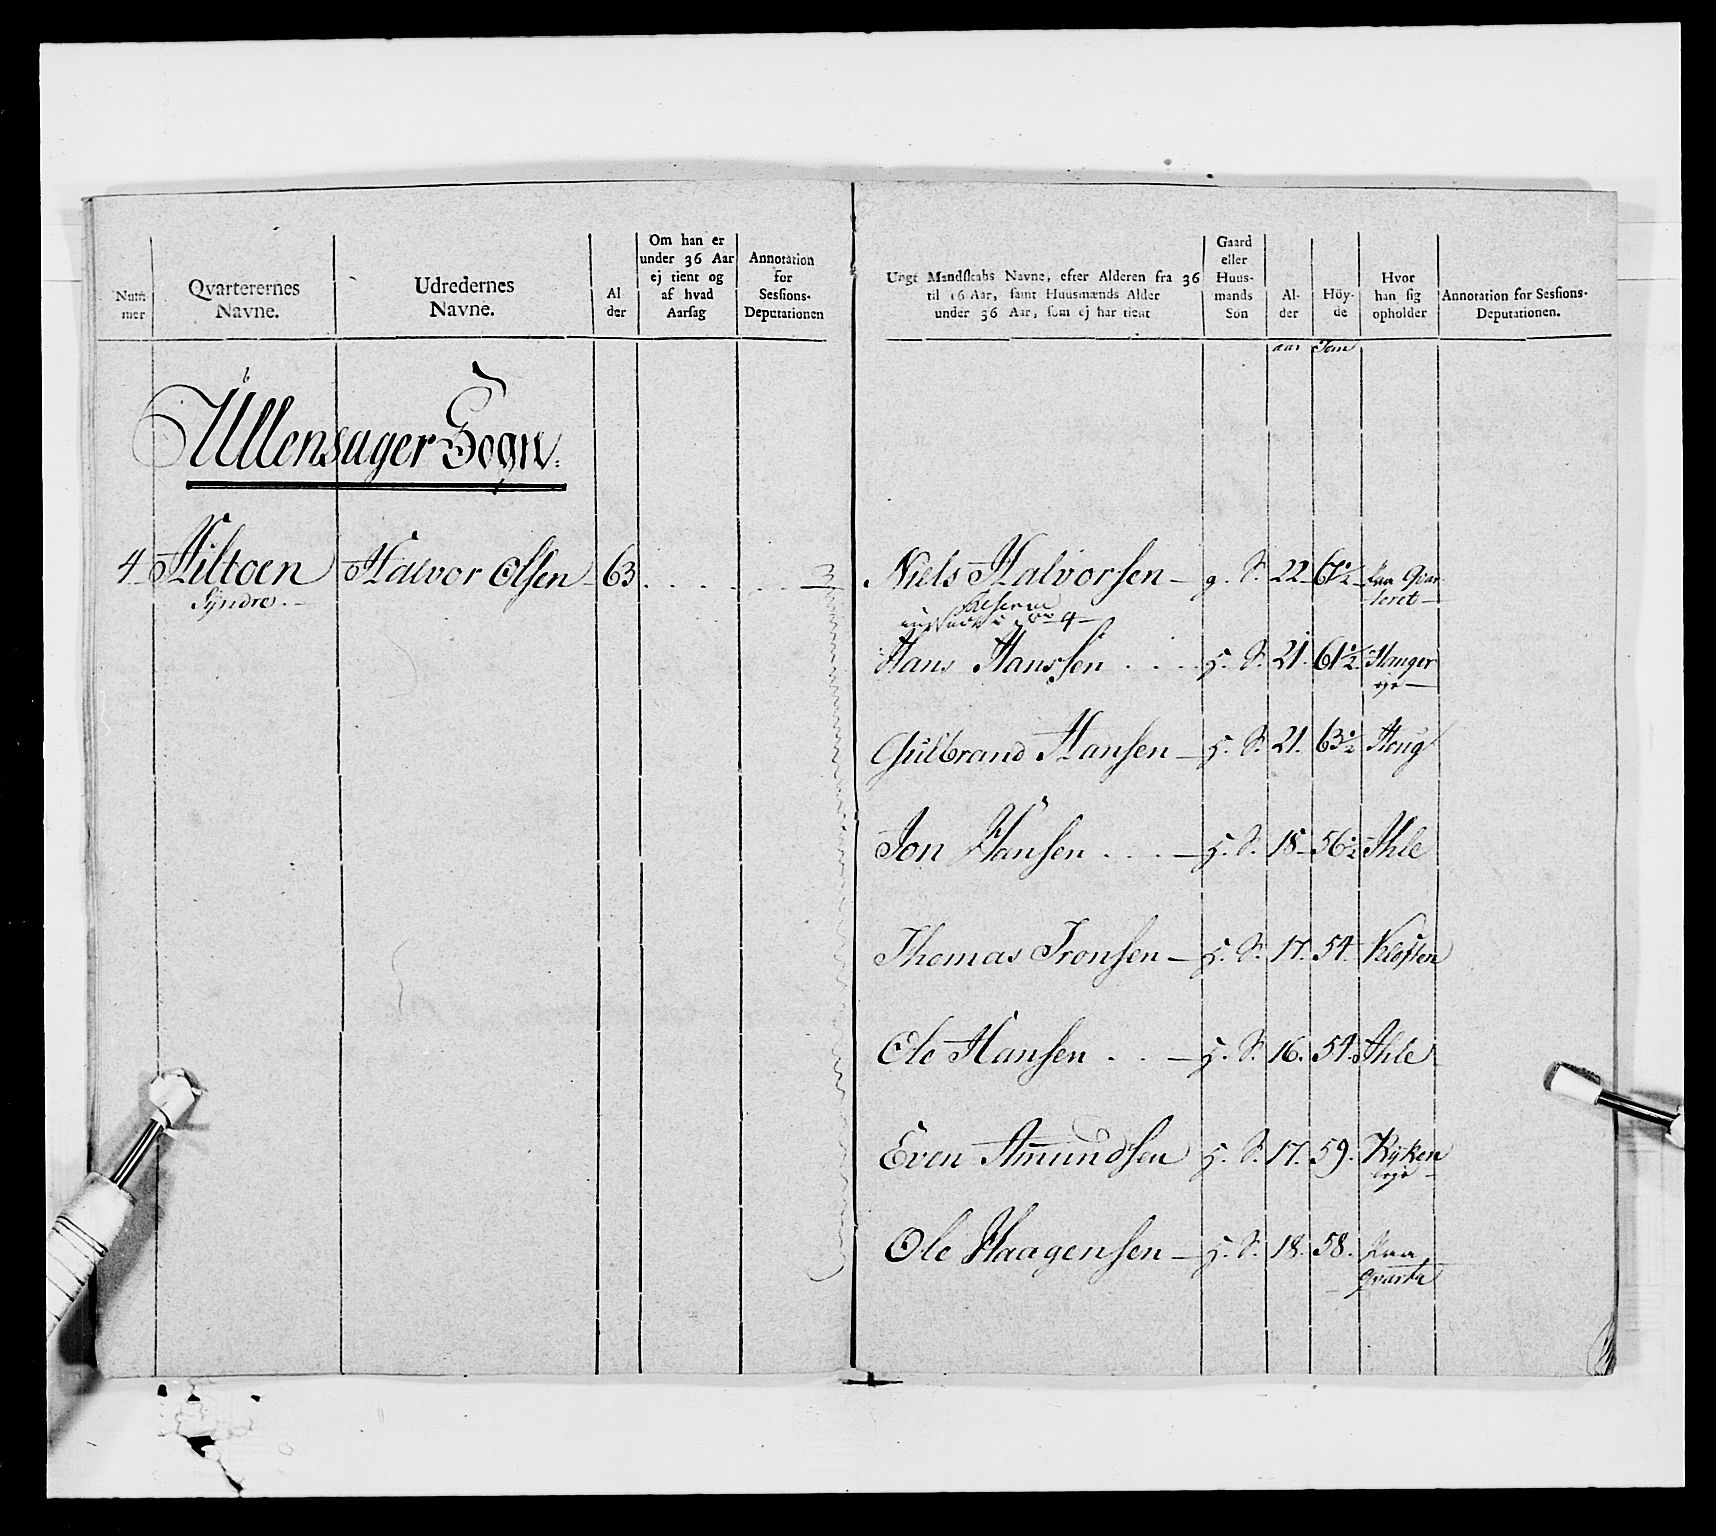 Num mer
Qvarterernes Navne.
Udredernes Navne.
Al der
Om han er under 36 Aar ej tient og af hvad Aarsag
Annotation for Sessions-Deputationen
Ungt Mandskabs Navne, efter Alderen fra 36 til 16 Aar, samt Huusmænds Alder under 36 Aar, som ej har tient
Gaard eller Huus-mands Søn
Al-der
Höy-de
Hvor han sig opholder
Annotation for Sessions-Deputationen.
aar Tom
Ullensager Sogn.
4 Hiltoen Halvor Olsen 63 3 Niels Halvorsen g. S. 22 61½ paa Qvar
Syndre teret
Reserve
4
Hans Hanssen h. S. 21. 61½ Houger
eje
Gulbrand Hansen h. S. 21. 63½ Houg
Jon Hansen h. S. 18 56½ Ihle
Thomas Tronsen h. S. 17. 54. Kloften
Ole Hansen h. S. 16. 54. Ihle
Even Amundsen h. S. 17. 59. Ryken
eje
Ole Haagensen h. S. 18. 58. paa
Qvarte